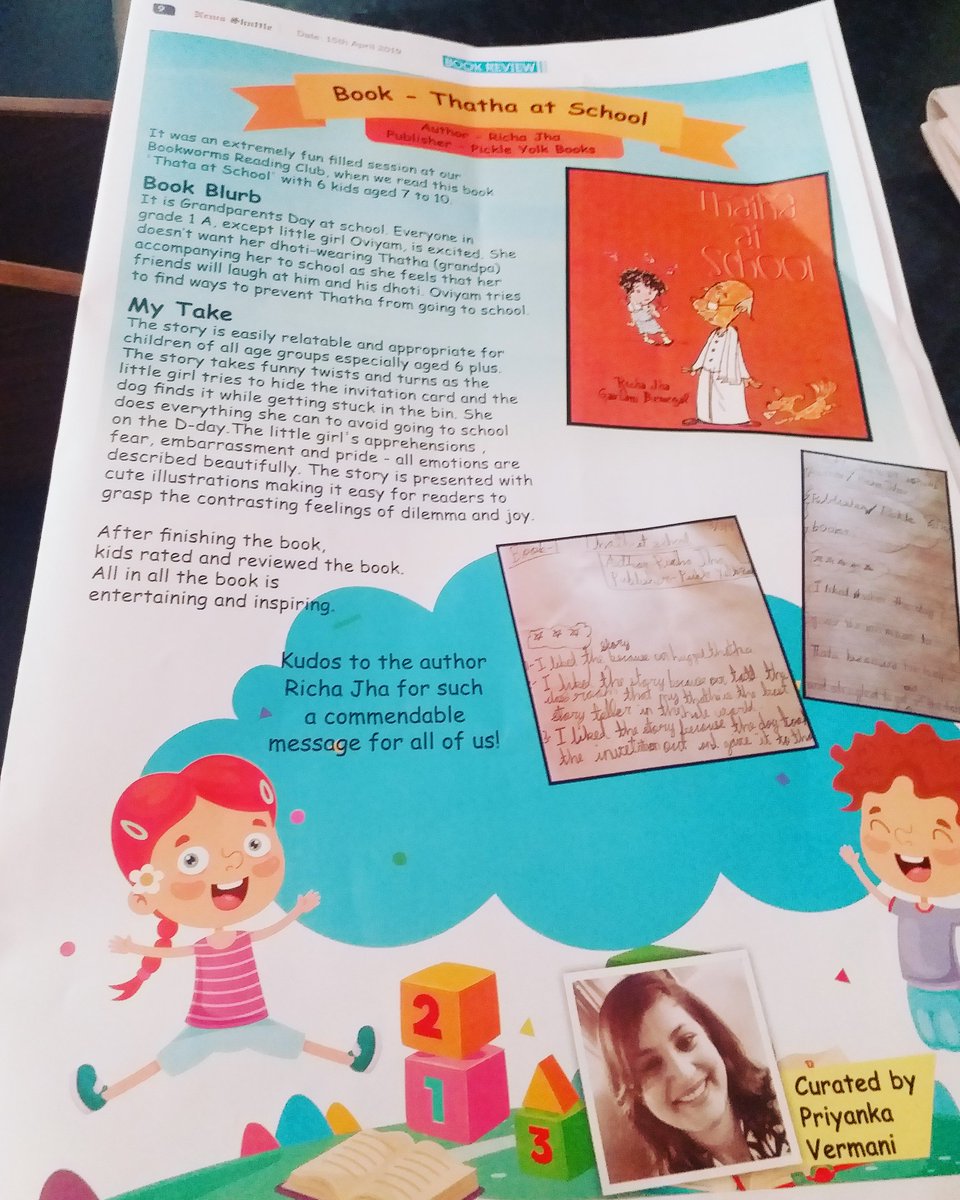 9
News Shuttle
Date: 15th April 2019
BOOK REVIEW
Book - Thatha at School
Author - Richa Jha
Publisher - Pickle Yolk Books
It was an extremely fun filled session at our
Bookworms Reading Club, when we read this book
"Thata at School" with 6 kids aged 7 to 10.
Book Blurb
It is Grandparents Day at school. Everyone in
grade 1 A, except little girl Oviyam, is excited. She
doesn't want her dhoti-wearing Thatha (grandpa)
accompanying her to school as she feels that her
friends will laugh at him and his dhoti. Oviyam tries
to find ways to prevent Thatha from going to school.
My Take
The story is easily relatable and appropriate for
children of all age groups especially aged 6 plus.
The story takes funny twists and turns as the
little girl tries to hide the invitation card and the
dog finds it while getting stuck in the bin. She
does everything she can to avoid going to school
on the D-day.The little girl's apprehensions ,
fear, embarrassment and pride - all emotions are
described beautifully. The story is presented with
cute illustrations making it easy for readers to
grasp the contrasting feelings of dilemma and joy.
After finishing the book,
kids rated and reviewed the book.
All in all the book is
entertaining and inspiring.
Kudos to the author
Richa Jha for such
a commendable
message for all of us!
Thatha
at
School
Richa Jha
Book-1
Author-Richa Jha
story
I liked the because
I liked the story because
that my thatha is the best
story teller in the whole world.
I liked the story because the dog took
the invitation out and gave it to the
books
I liked the dog
2
1
3
Curated by
Priyanka
Vermani